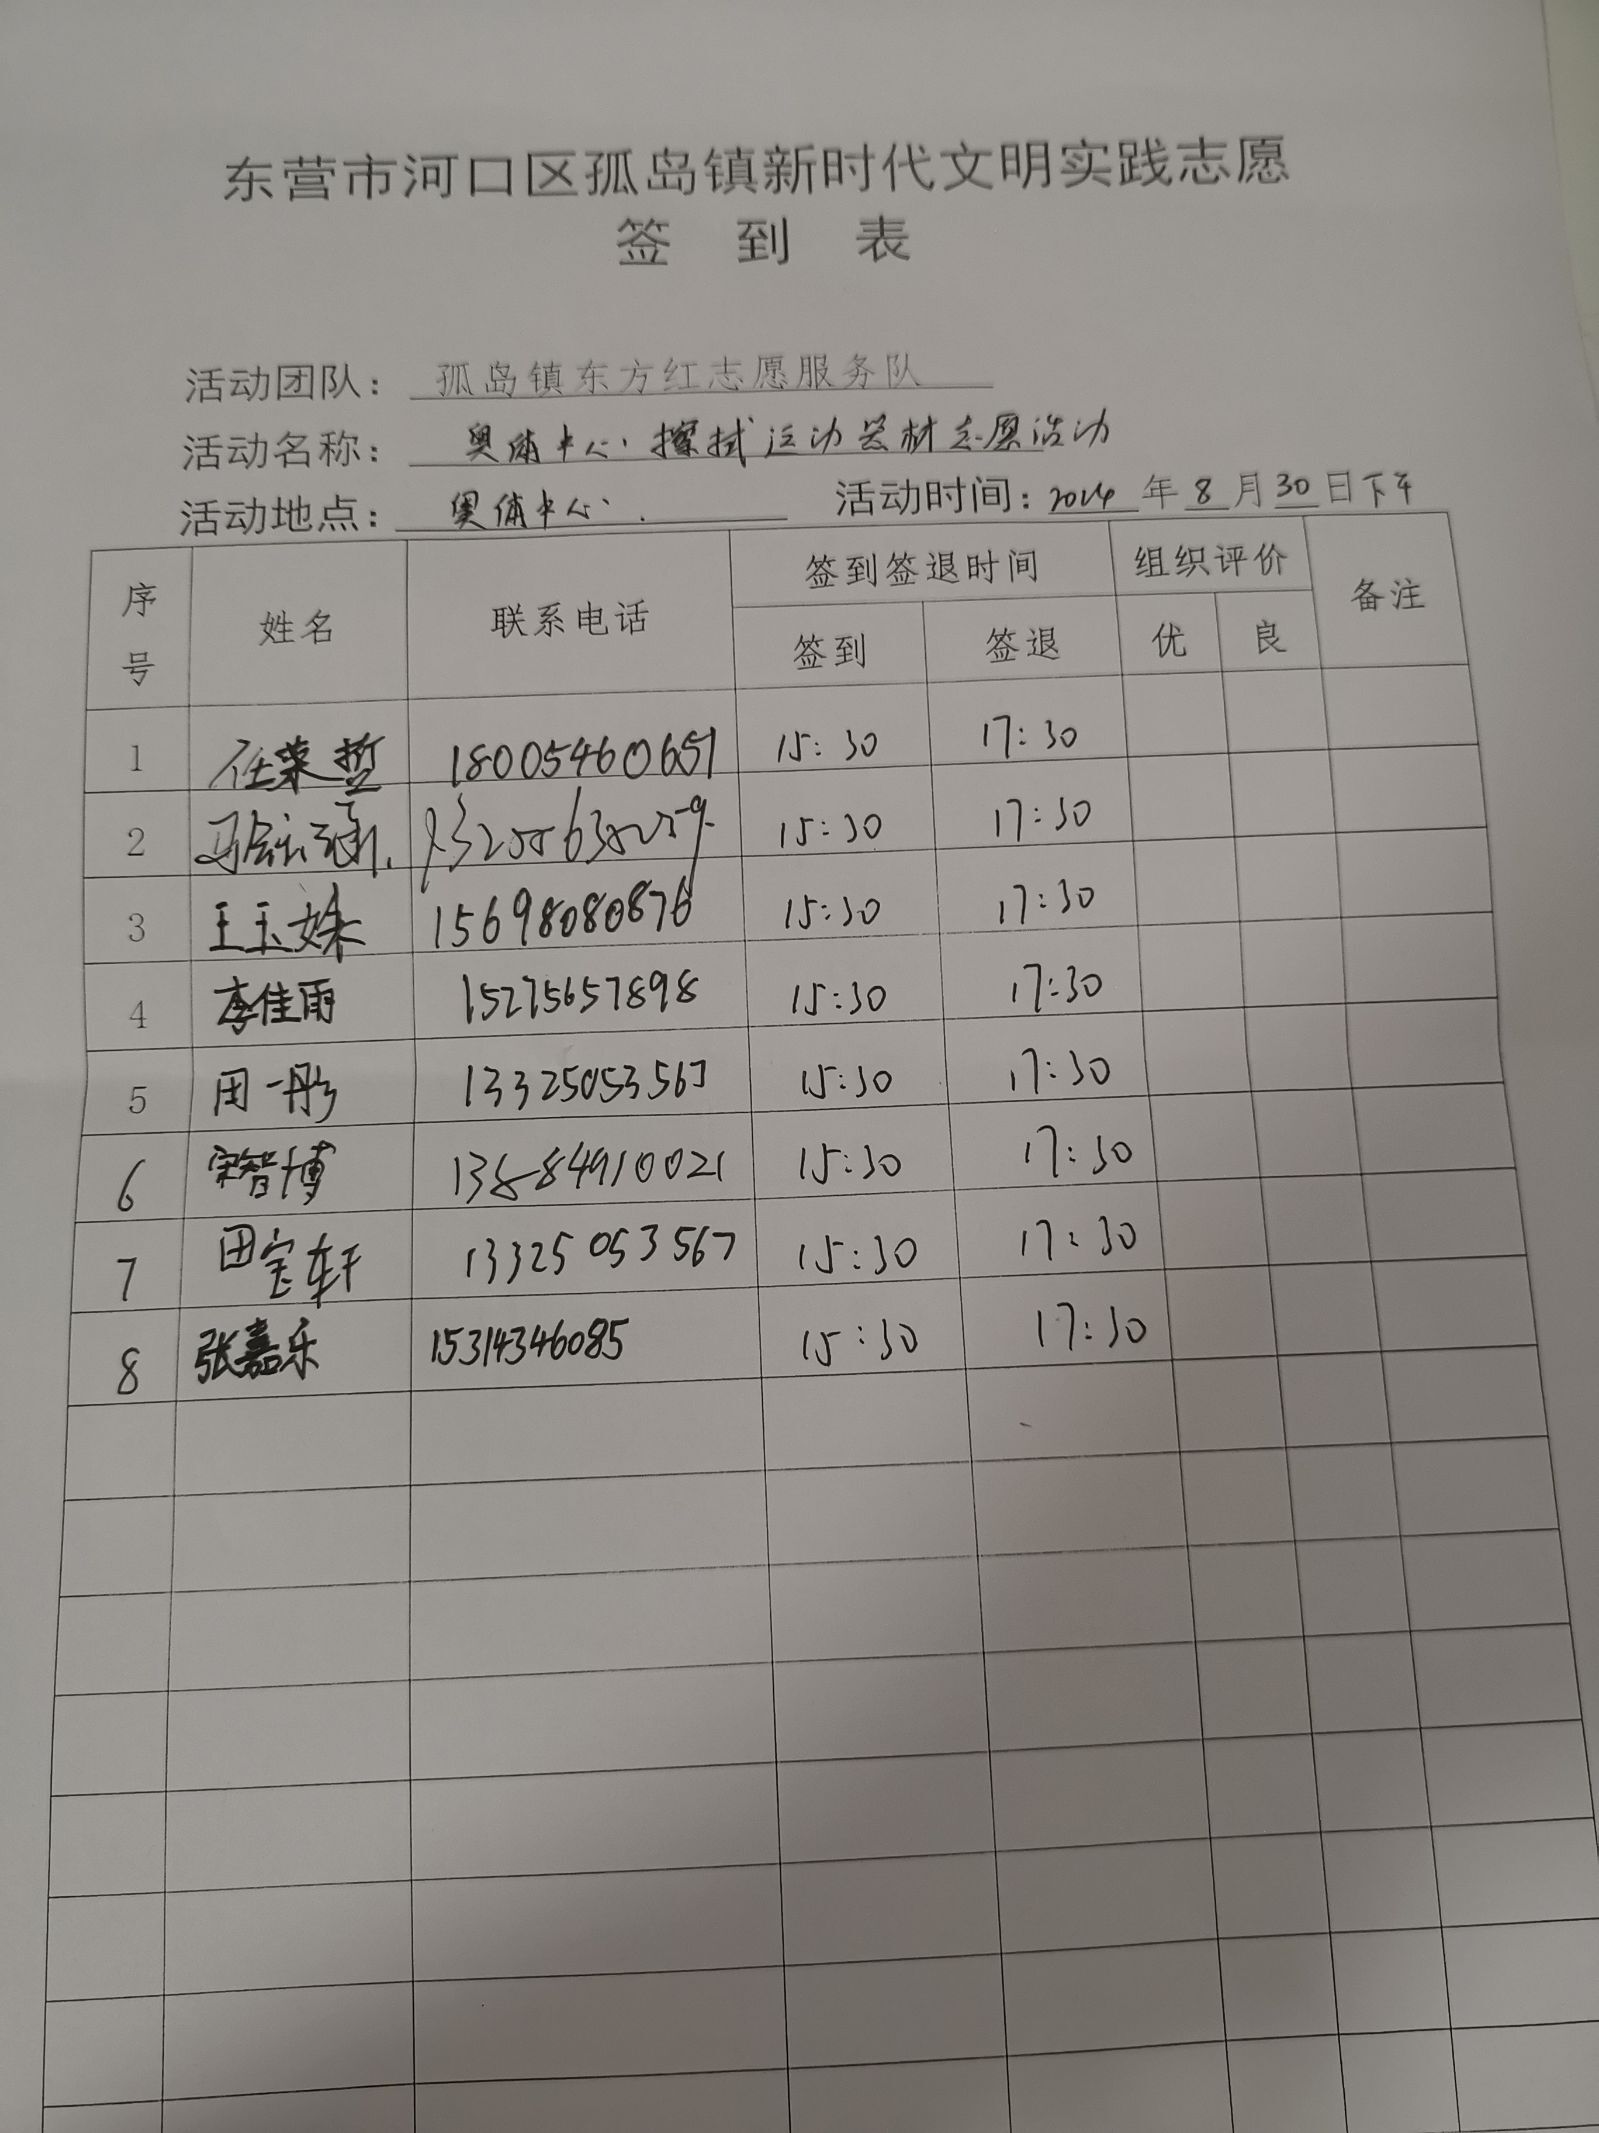 东营市河口区孤岛镇新时代文明实践志愿
签 到 表
活动团队: 孤岛镇东方红志愿服务队
活动名称: 奥体中心擦拭运动器材志愿活动
活动地点: 奥体中心 活动时间: 2024 年 8 月 30 日下午
序号 姓名 联系电话 签到签退时间 组织评价 备注
签到 签退 优 良
1 任荣哲 18005460651 15:30 17:30
2 15:30 17:30
3 王玉姝 15698080876 15:30 17:30
4 李佳雨 15275657898 15:30 17:30
5 田一彤 13325053567 15:30 17:30
6 宋智博 13884910021 15:30 17:30
7 田宝轩 13325053567 15:30 17:30
8 张嘉乐 15314346085 15:30 17:30